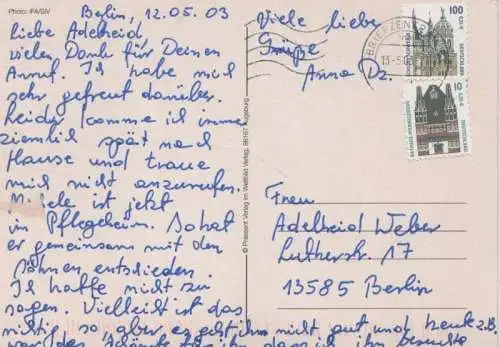 Photo: IFA/SIV
Berlin, 12.05.03
liebe Adelheid
vielen Dank für Deinen
Anruf. Ich habe mich
sehr gefreut darüber.
Leider komme ich imme
ziemlich spät nach
Hause und traue
mich nicht anzurufen.
ist jetzt
im Pflegeheim. So hat
er gemeinsam mit den
Söhnen entschieden.
Ich hatte nicht zu
sagen. Vielleicht ist das
richtig so, aber es geht ihm nicht gut und heute z.B.
war das Schönste für ihn, dass ich ihn besuchte
Viele liebe
Grüße
Anna Dz.
© Präsent Verlag im Weltbild Verlag, 86167 Augsburg
BRIEFZENTR
13.-5.03
100
0,51 €
DEUTSCHLAND
10
DEUTSCHLAND
Frau
Adelheid Weber
Lutherstr. 17
13585 Berlin